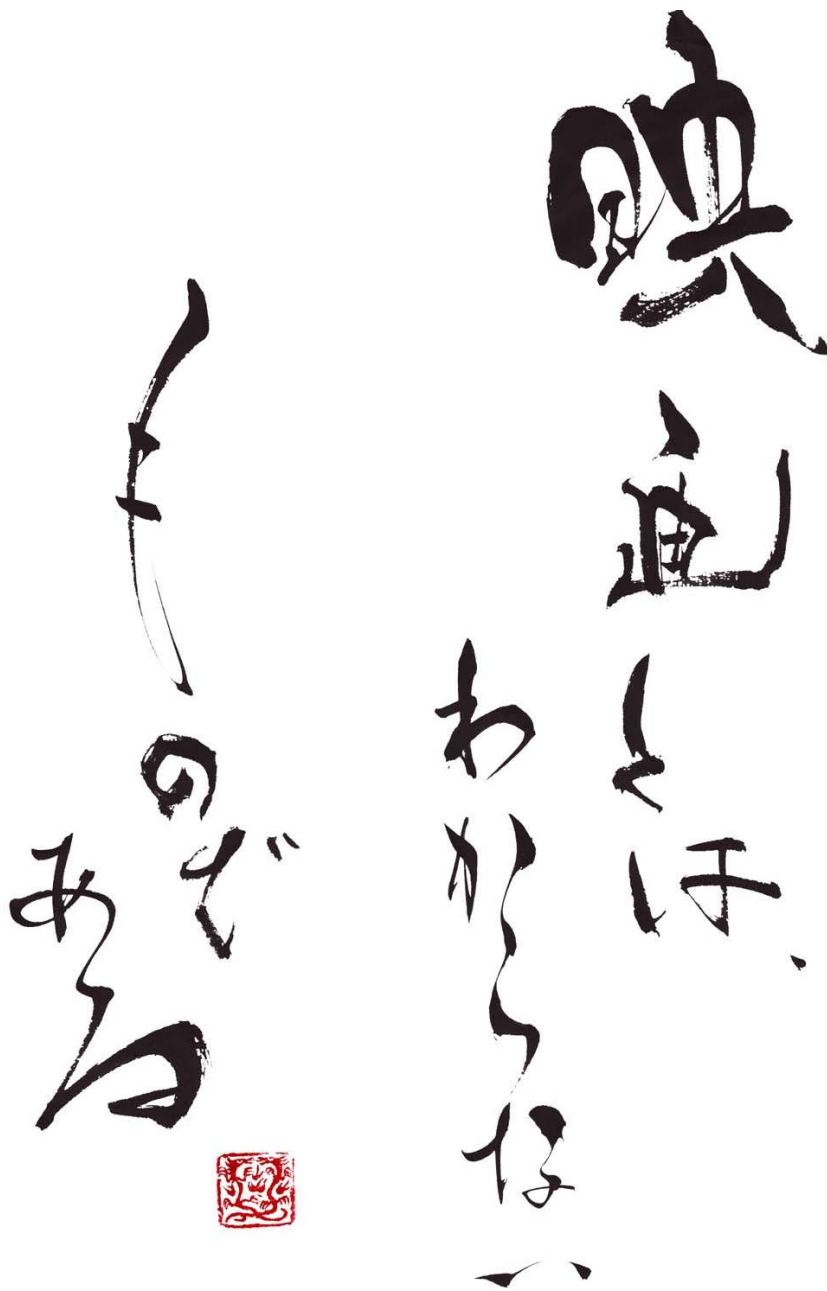 映画とは、
わからない
ものだ
ある